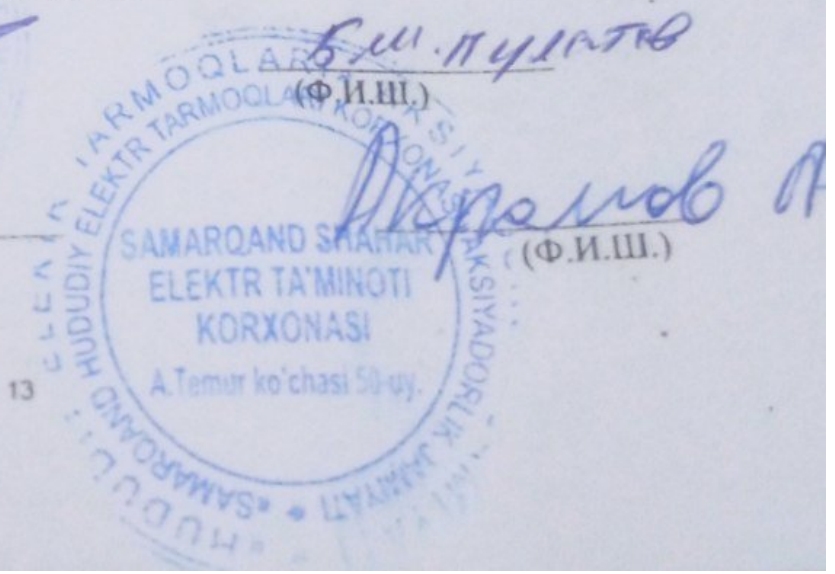 Б.Ш. Пулатов
(Ф.И.Ш.)
Акрамов А
(Ф.И.Ш.)
HUDUDIY ELEKTR TARMOQLARI
«SAMARQAND HUDUDIY ELEKTR TARMOQLARI KORXONASI» AKSIYADORLIK JAMIYATI
SAMARQAND SHAHAR
ELEKTR TA'MINOTI
KORXONASI
A.Temur ko'chasi 50-uy.
13